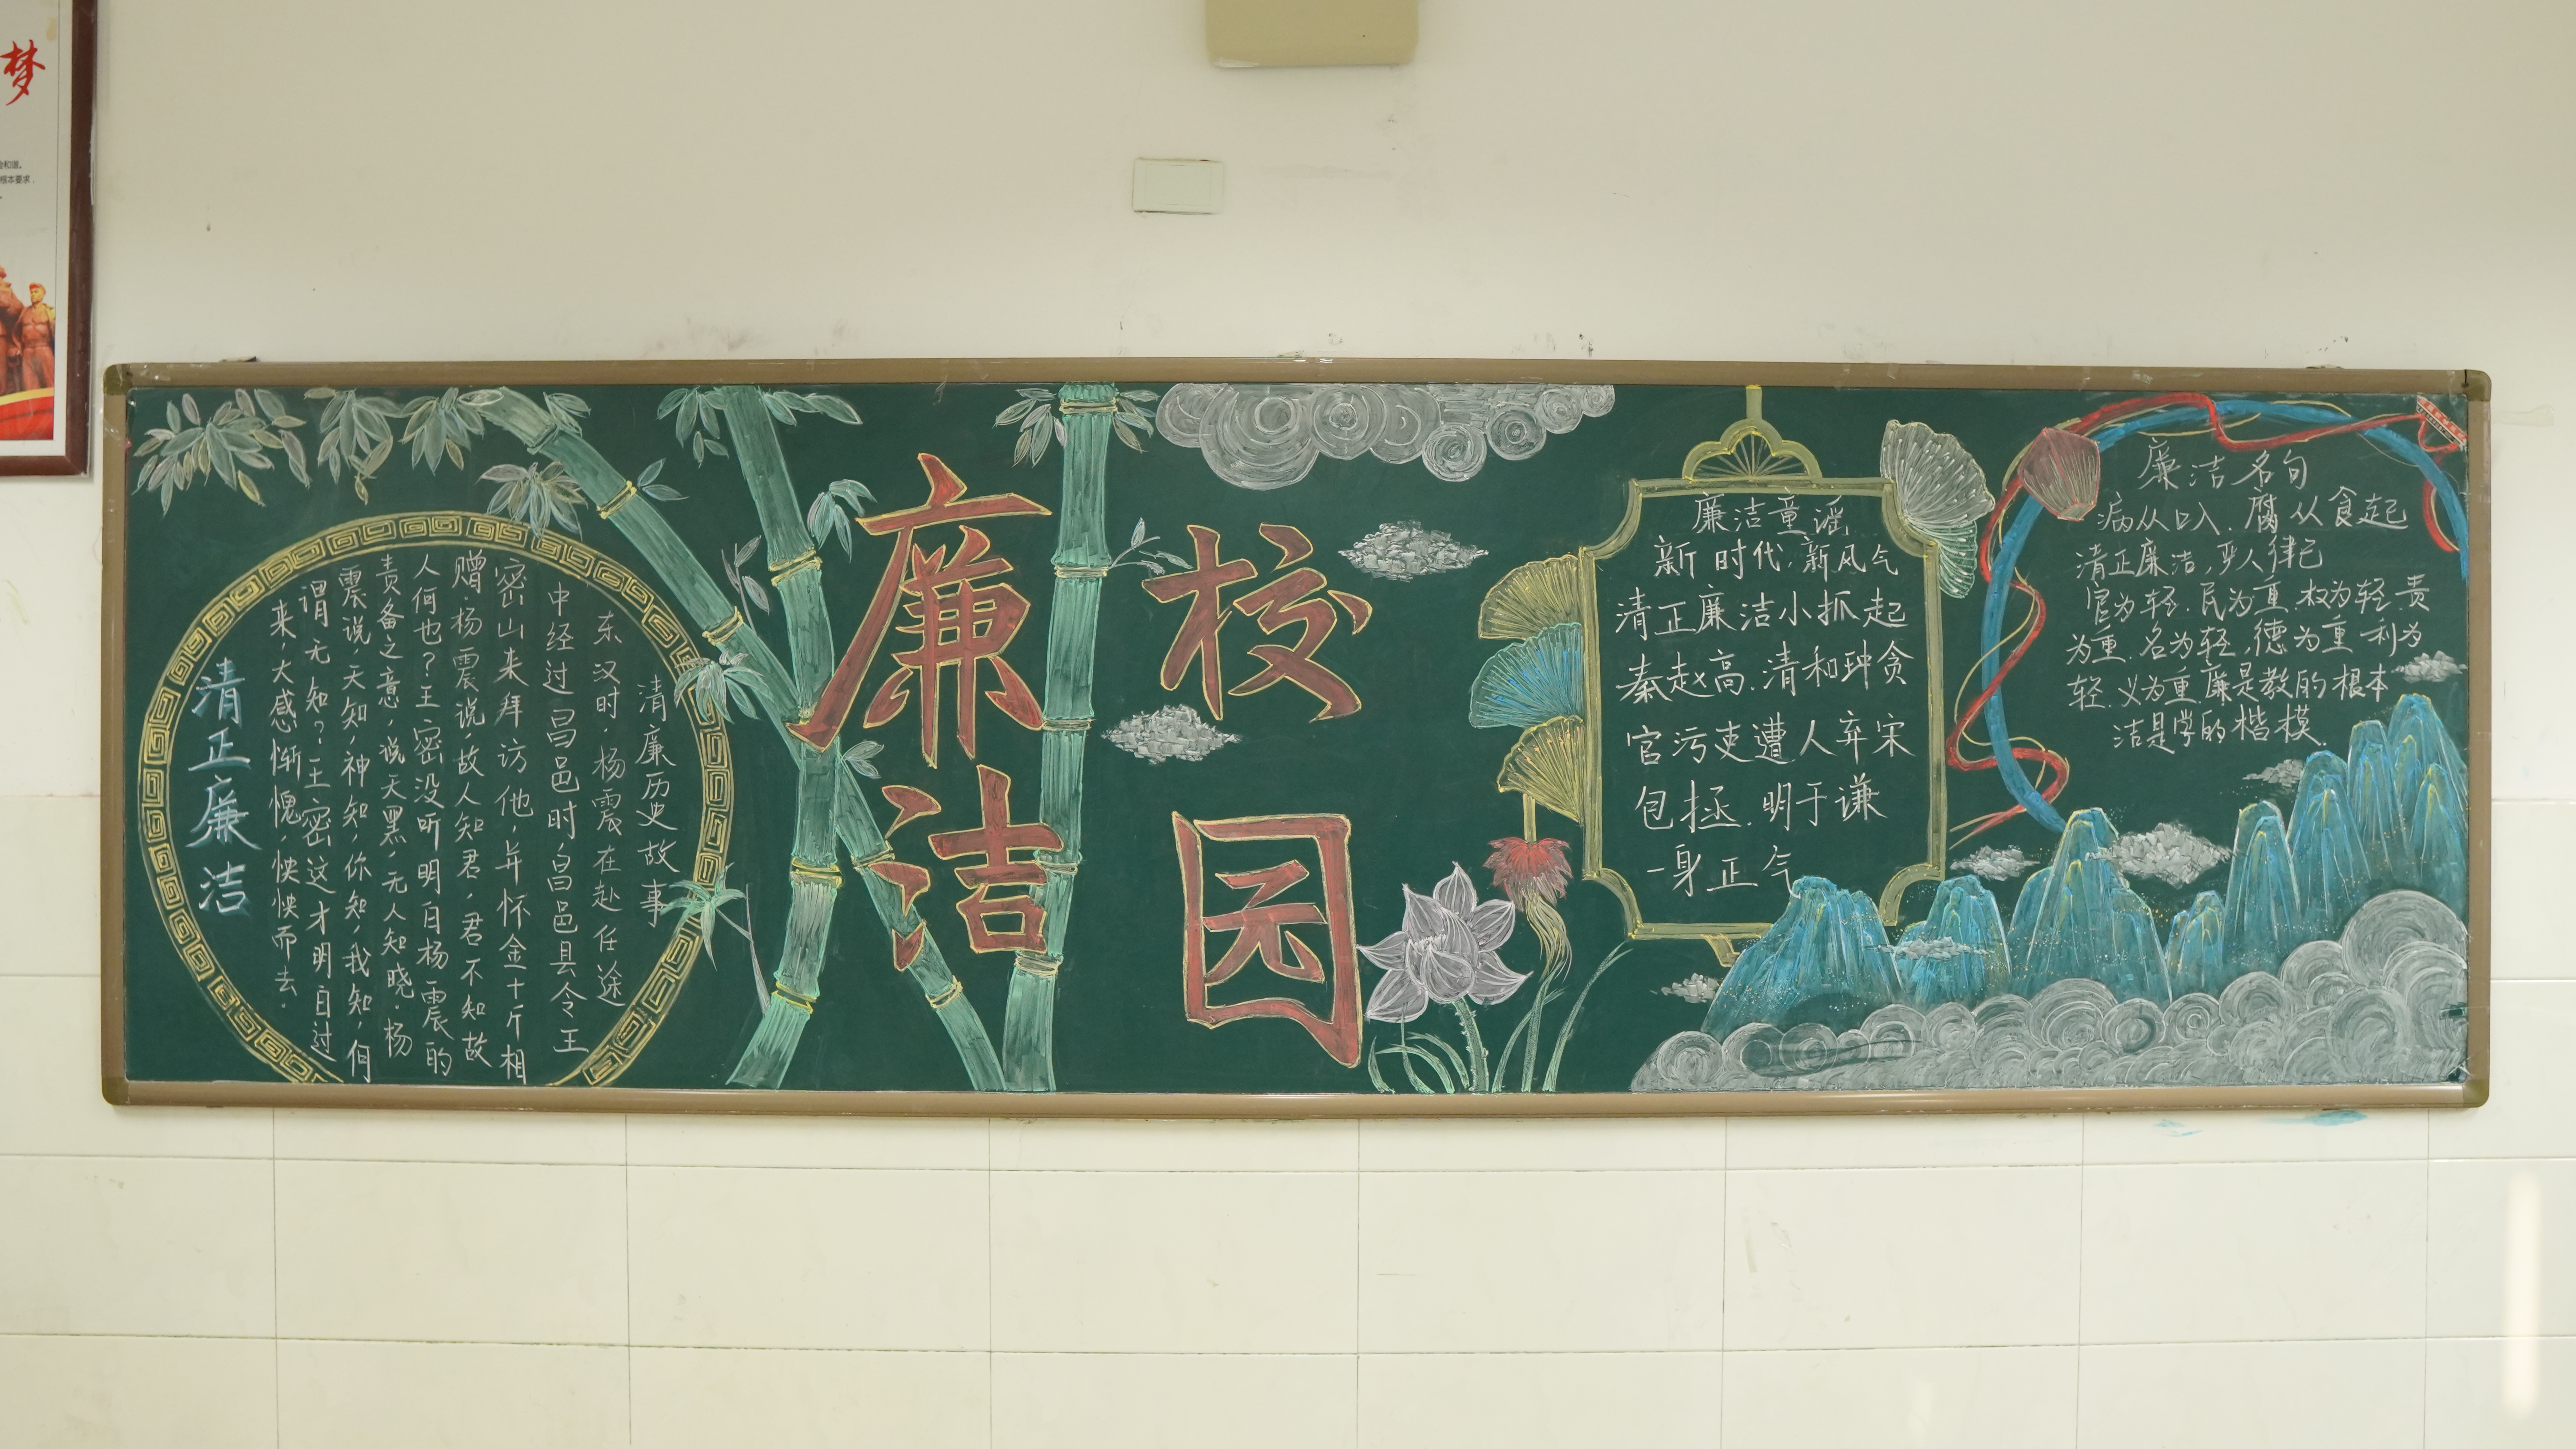 梦
根本要求
清正廉洁
清廉历史故事
东汉时，杨震在赴任途
中经过昌邑时，昌邑县令王
密山来拜访他，并怀金十斤相
赠，杨震说，故人知君，君不知故
人何也？王密没听明白杨震的
责备之意，说天黑，无人知晓。杨
震说，天知，神知，你知，我知，何
谓无知？王密这才明白过
来，大感惭愧，怏怏而去。
廉洁
校园
廉洁童谣
新时代，新风气
清正廉洁小抓起
秦赵高，清和珅贪
官污吏遭人弃宋
包拯，明于谦
一身正气
廉洁名句
病从口入，腐从食起
清正廉洁，严人律己
官为轻，民为重，权为轻，责
为重，名为轻，德为重，利为
轻，义为重，廉是教的根本
洁是学的楷模。